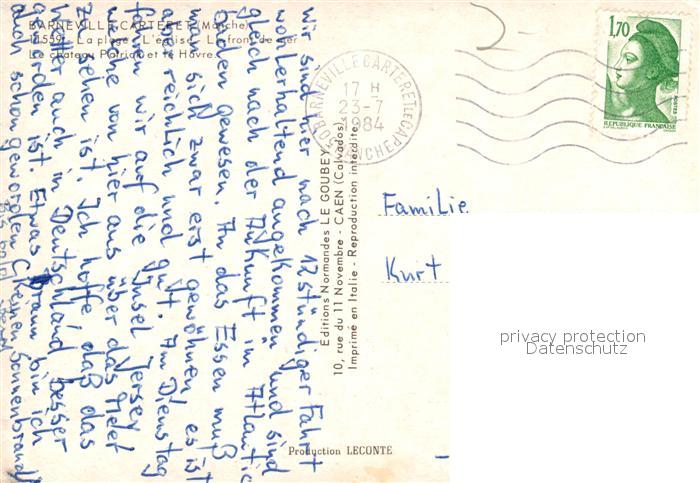 BARNEVILLE-CARTERET (Manche)
11559 - La plage - L'église - Le front de mer
Le château Patrice et le Havre
wir sind hier nach 12 stündiger Fahrt
wohlerhaltend angekommen und sind
gleich nach der Ankunft im Atlantic
baden gewesen. An das Essen muß
man sich zwar erst gewöhnen, es ist
aber reichlich und gut. Am Dienstag
fahren wir auf die Insel Jersey
welche von hier aus über das Meer
zu sehen ist. Ich hoffe daß das
Wetter auch in Deutschland besser
geworden ist. Etwas braun bin ich
auch schon geworden (keinen Sonnenbrand)
Bis bald
Editions Normandes LE GOUBEY
10, rue du 11 Novembre - CAEN (Calvados)
Imprimé en Italie - Reproduction interdite
Production LECONTE
50 BARNEVILLE CARTERET LE CAP
MANCHE
17 H
23-7
1984
1,70
POSTES
REPUBLIQUE FRANÇAISE
Familie
Kurt
privacy protection
Datenschutz